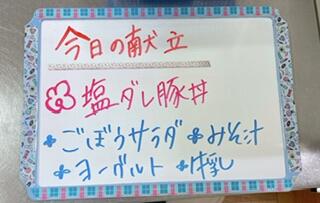 今日の献立
塩ダレ豚丼
ごぼうサラダ みそ汁
ヨーグルト 牛乳